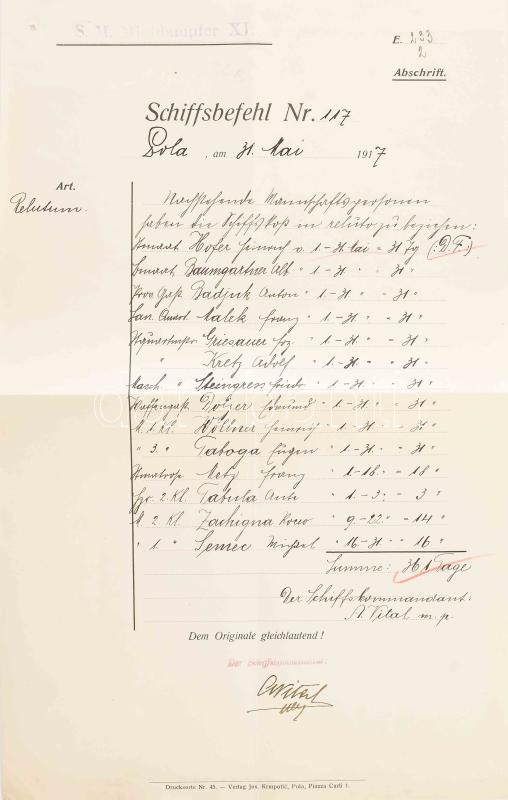 S. M. Minendampfer XI.
E. 233
2
Abschrift.
Schiffsbefehl Nr. 117
Pola, am 31. Mai 1917
Art.
Relutum.
Nachstehende Mannschaftspersonen
haben die Schiffskost in reluto zu beziehen:
Hofer Heinrich v. 1.-31. Mai = 31 Tg. (:D.F.:)
Baumgartner Alb. " 1-31 " = 31 "
Prov. Gast. Badjuk Anton " 1.-31. " = 31 "
San. Malek Franz " 1.-31. " = 31 "
Griesauer " 1.-31. " = 31 "
" Kretz Adolf " 1.-31. " = 31 "
Masch. " Steingress " 1.-31. " = 31 "
Waffengast. Dolzer Edmund " 1.-31. " = 31 "
M. 1 Kl. Wöllner Heinrich " 1.-31. " = 31 "
" 3. " Taboga Eugen " 1.-31. " = 31 "
Metz Franz " 1-18. " = 18 "
2 Kl. Tabula Ante " 1.-3. " = 3 "
M. 2 Kl. Zachigna Rocco " 9.-22. " = 14 "
" 1. " Semec Michael " 16.-31. " = 16 "
Summe: 361 Tage
Der Schiffskommandant:
A. Vital m. p.
Dem Originale gleichlautend!
Der Schiffskommandant:
AVital
Drucksorte Nr. 45. — Verlag Jos. Krmpotić, Pola, Piazza Carli 1.